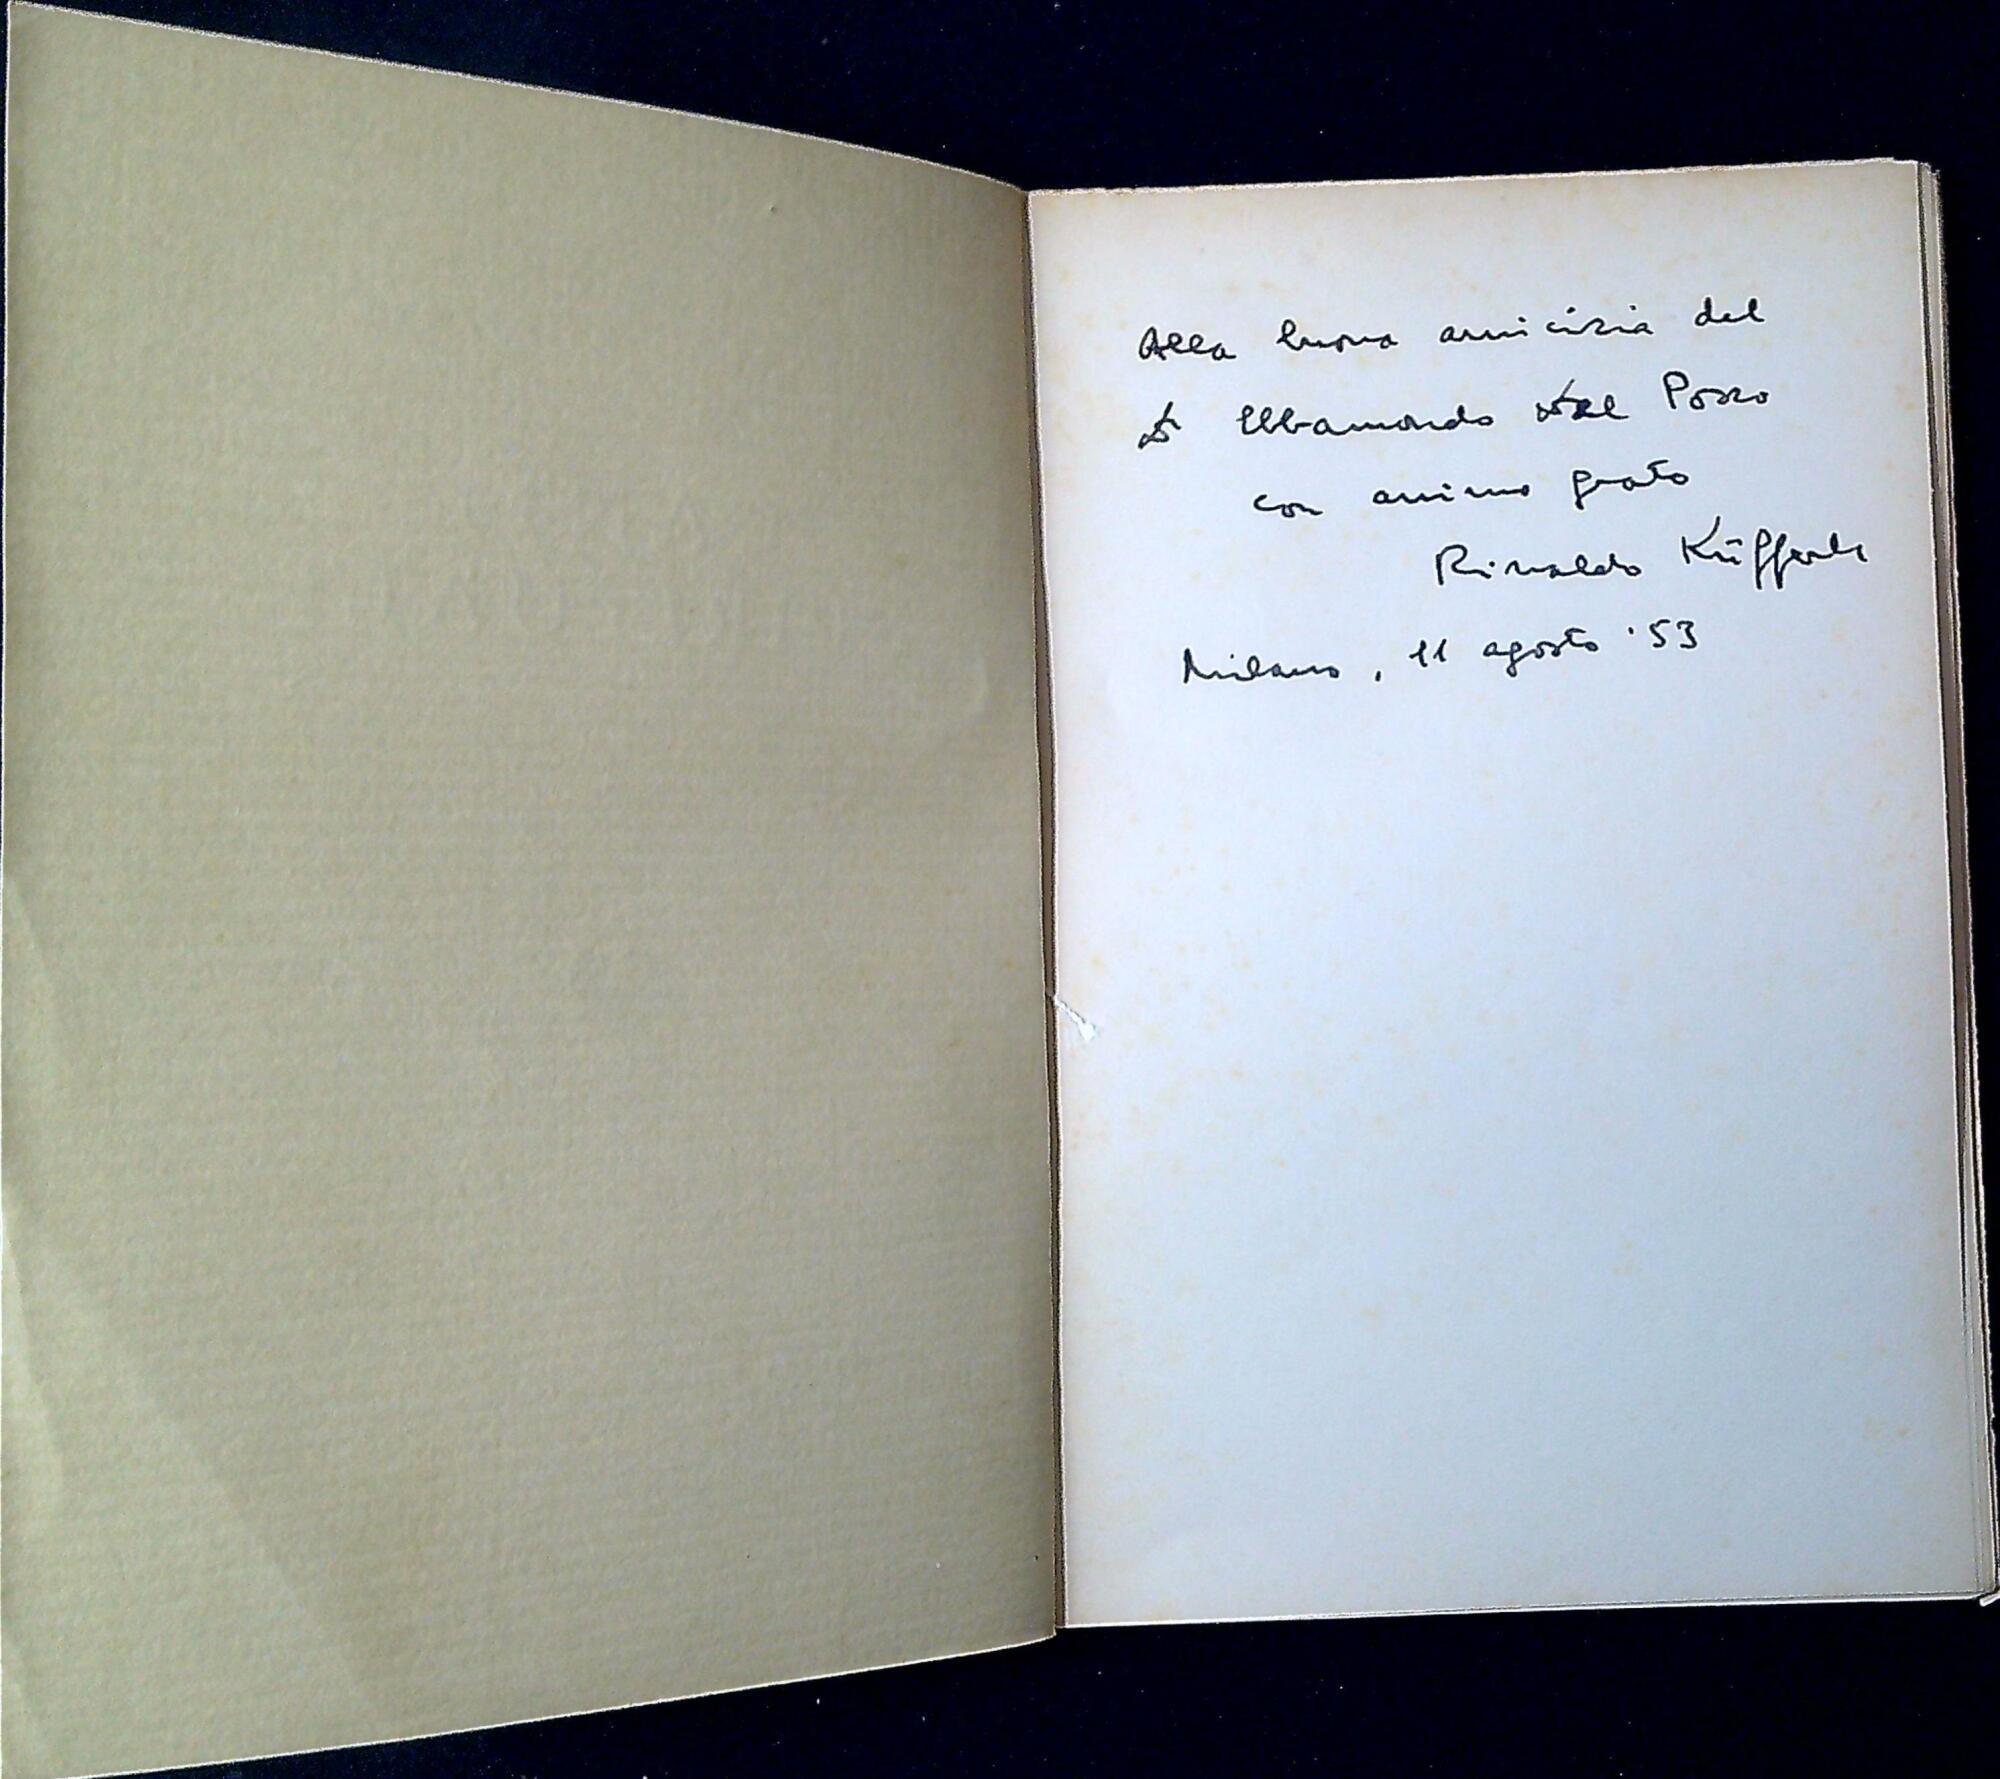 Alla buona amicizia del
Dr Ebbamondo Dal Pozzo
con animo grato
Rinaldo Küfferle
Milano, 11 agosto '53